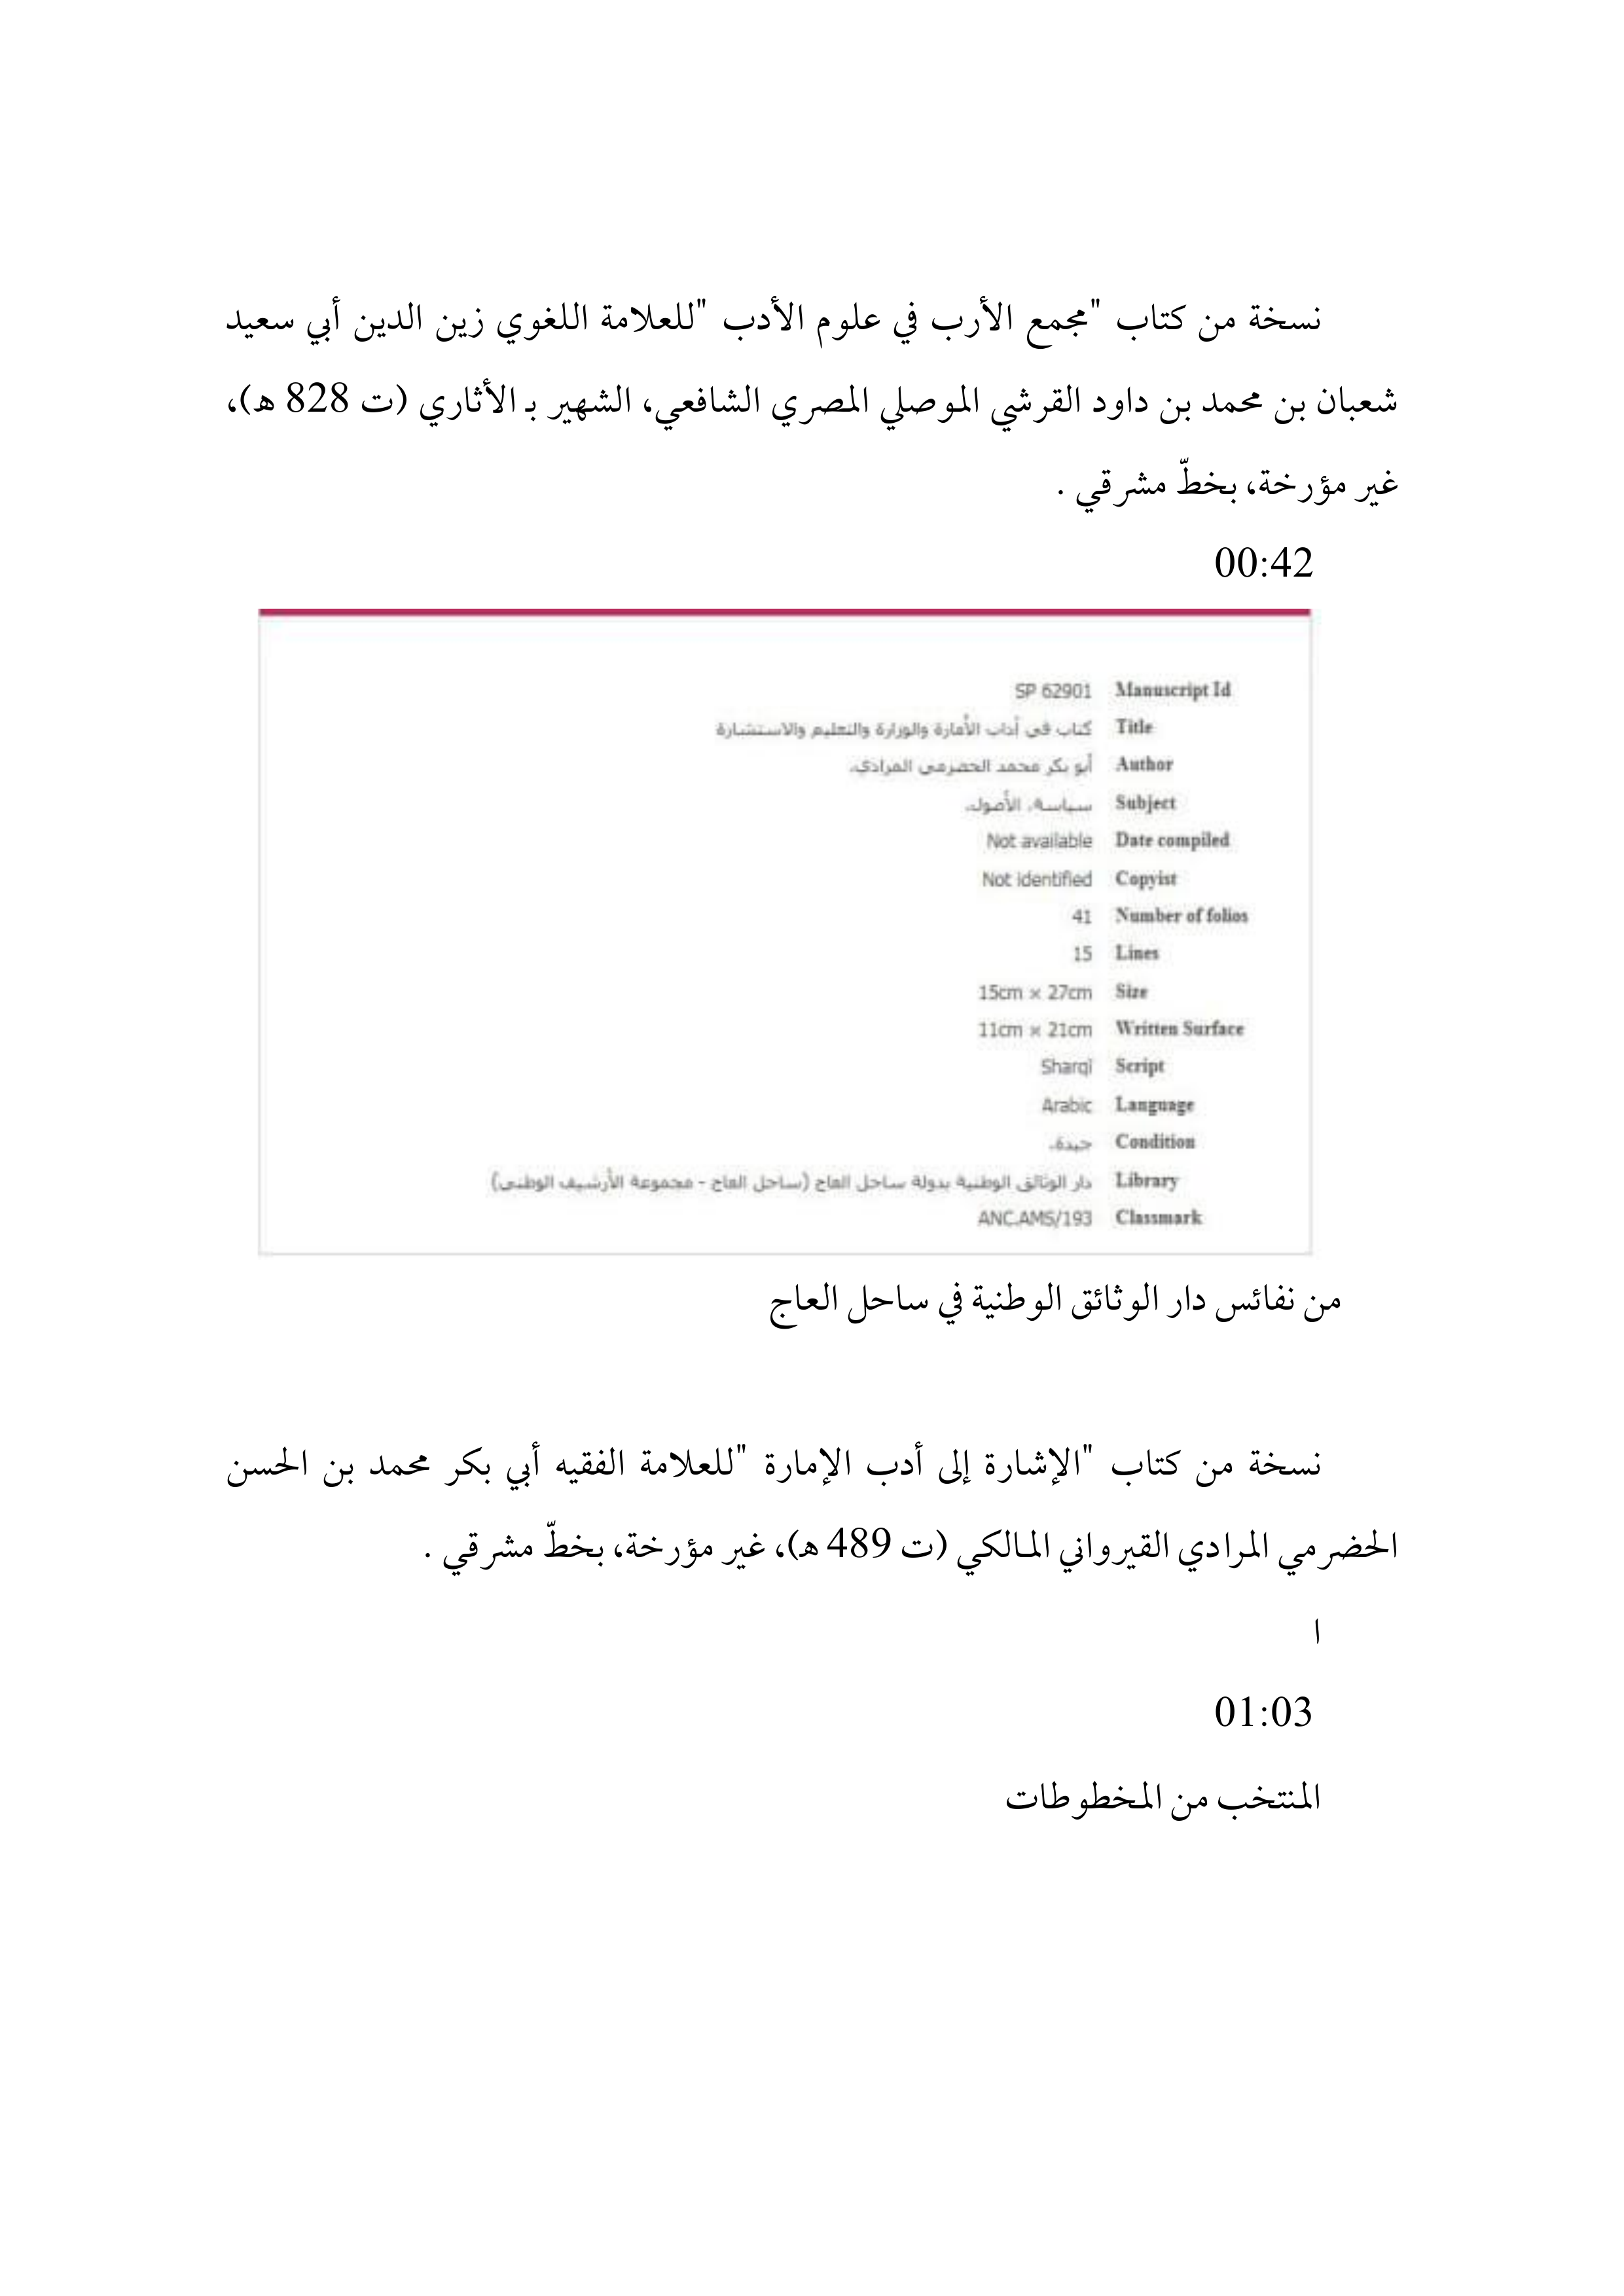 نسخة من كتاب "مجمع الأرب في علوم الأدب "للعلامة اللغوي زين الدين أبي سعيد
شعبان بن محمد بن داود القرشي الموصلي المصري الشافعي، الشهير بـ الأثاري (ت 828 هـ)،
غير مؤرخة، بخطّ مشرقي .
00:42
Manuscript Id SP 62901
Title كتاب في آداب الأمارة والوزارة والتعليم والاستشارة
Author أبو بكر محمد الحضرمي المرادي.
Subject سياسة. الأصول.
Date compiled Not available
Copyist Not identified
Number of folios 41
Lines 15
Size 15cm × 27cm
Written Surface 11cm × 21cm
Script Sharqī
Language Arabic
Condition جيدة.
Library دار الوثائق الوطنية بدولة ساحل العاج (ساحل العاج - مجموعة الأرشيف الوطني)
Classmark ANC.AMS/193
من نفائس دار الوثائق الوطنية في ساحل العاج
نسخة من كتاب "الإشارة إلى أدب الإمارة "للعلامة الفقيه أبي بكر محمد بن الحسن
الحضرمي المرادي القيرواني المالكي (ت 489 هـ)، غير مؤرخة، بخطّ مشرقي .
ا
01:03
المنتخب من المخطوطات